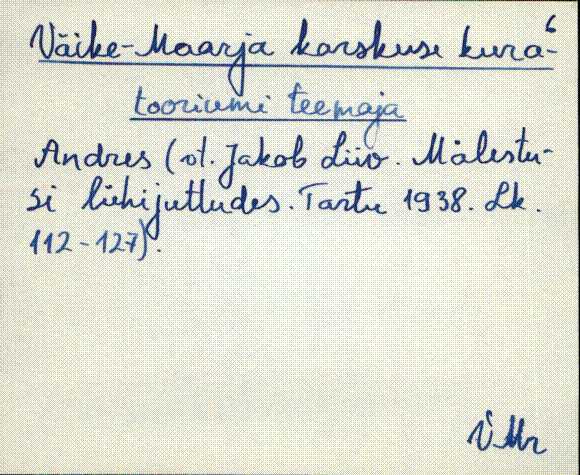 6
Väike-Maarja karskuse kura-
tooriumi teemaja
Andres (vt. Jakob Liiv. Mälestu-
si lühijuttudes. Tartu 1938. Lk.
112-127).
VMr